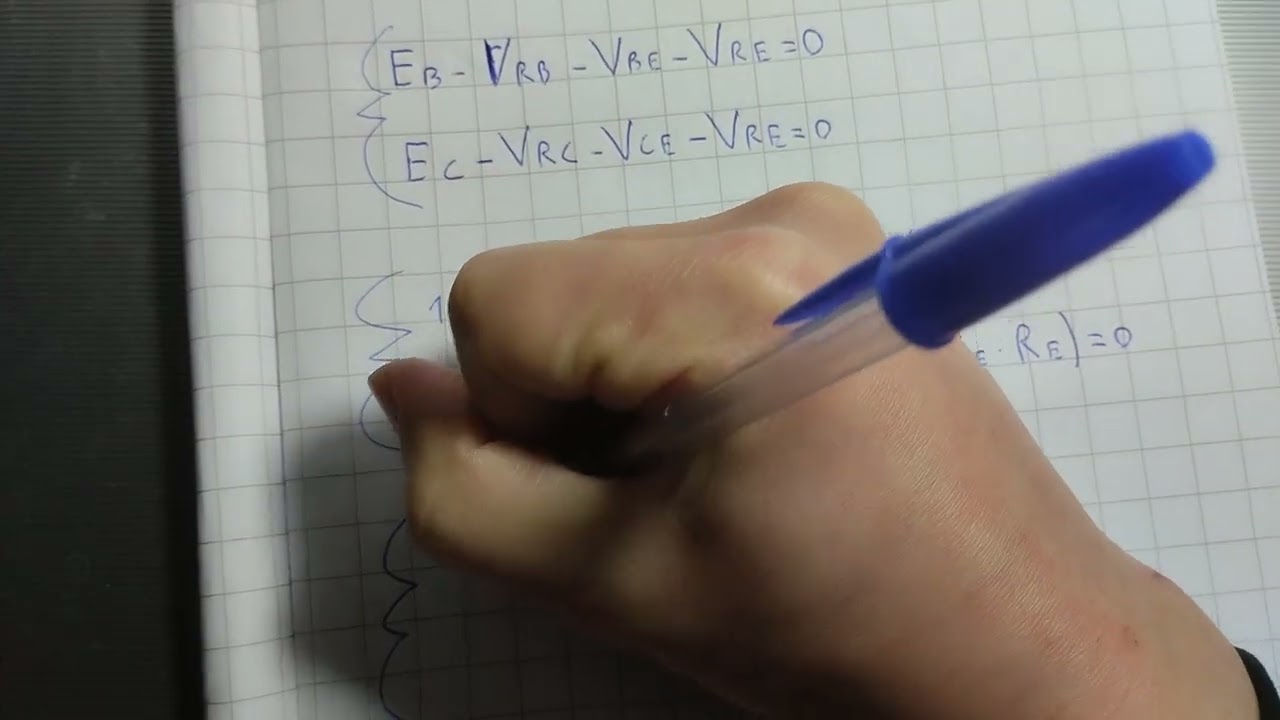 EB - VRB - VBE - VRE = 0
EC - VRC - VCE - VRE = 0
1 E · RE) = 0